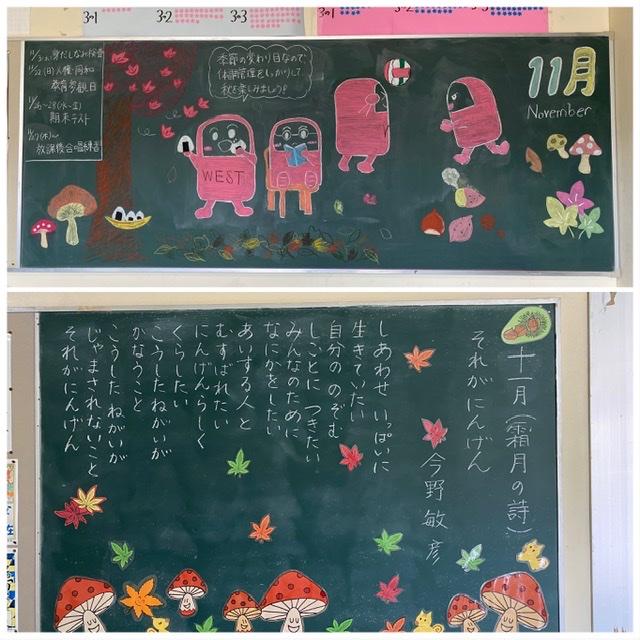 3の1
3-2
3-3
11/3(木)身だしなみ検査
11/12(日)人権・同和
教育参観日
期末テスト
放課後合唱練習
季節の変わり目なので
体調管理をしっかりして
秋を楽しみましょう!
11月
November
WEST
十一月(霜月の詩)
それがにんげん
今野敏彦
しあわせ いっぱいに
生きていたい
自分の のぞむ
しごとに つきたい
みんなのために
なにかをしたい
あいする人 と
むすばれたい
にんげんらしく
くらしたい
こうしたねがいが
かなうこと
こうした ねがいが
じゃまされないこと
それがにんげん